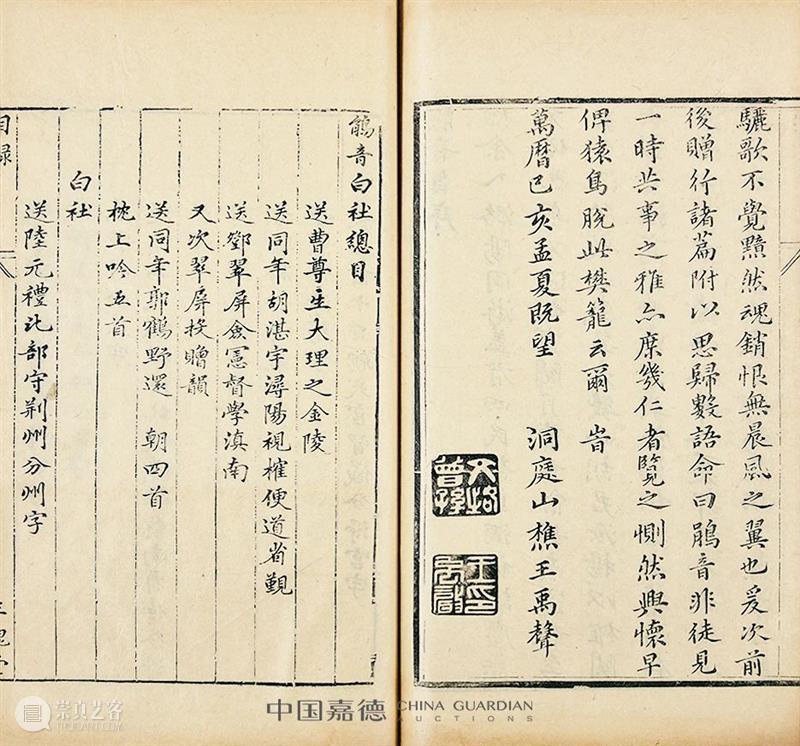 驪歌不覺黯然魂銷恨無晨風之翼也爰次前
後贈行諸篇附以思歸數語命曰鵑音非徒見
一時共事之雅亦庶幾仁者覽之惻然興懷早
俾猿鳥脫此樊籠云爾 旹
萬曆己亥孟夏既望 洞庭山樵王禹聲
文恪
曾孫
鵑音白社總目
送曹尊生大理之金陵
送同年胡湛宇潯陽視榷便道省覲
送鄧翠屏僉憲督學滇南
又次翠屏投贈韻
送同年郭鶴野還 朝四首
枕上吟五首
白社
送陸元禮比部守荆州分州字
目錄
中国嘉德 CHINA GUARDIAN
AUCTIONS
崇真艺客